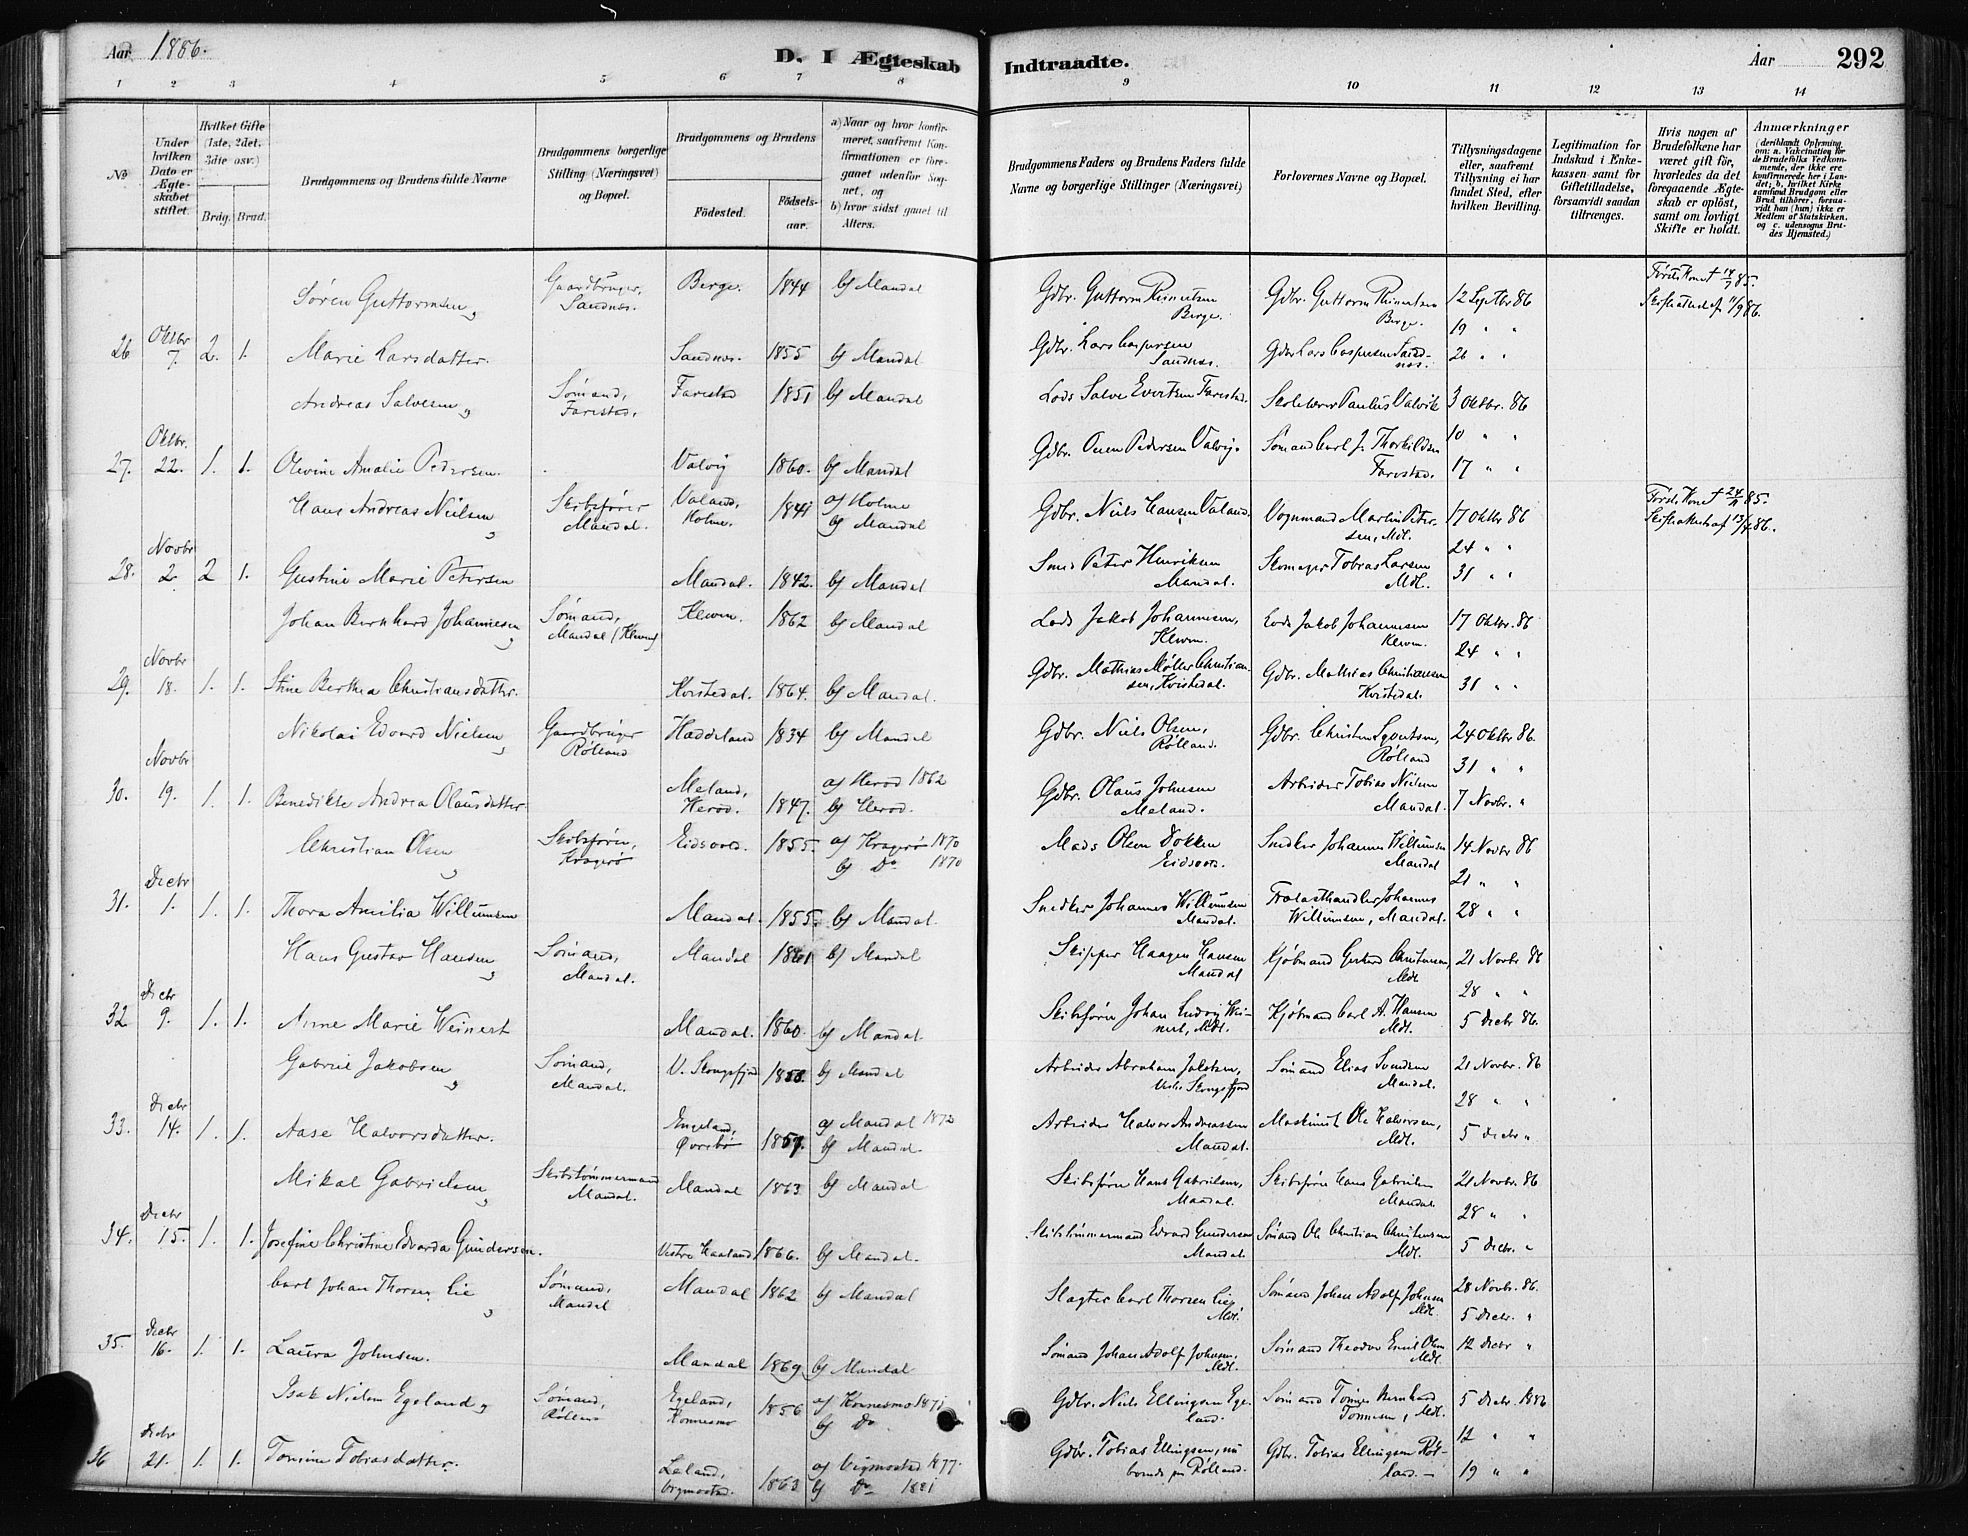 Aar 1886.
D. I Ægteskab Indtraadte.
Aar
292
1 2 3 4 5 6 7 8 9 10 11 12 13 14
No
Under hvilken Dato er Ægteskabet stiftet.
Hvilket Gifte (1ste, 2det, 3die osv.)
Brdg. Brud.
Brudgommens og Brudens fulde Navne
Brudgommens borgerlige Stilling (Næringsvei) og Bopæl.
Brudgommens og Brudens
Födested.
Födselsaar.
a) Naar og hvor konfirmeret, saafremt Konfirmationen er foregaaet udenfor Sognet, og
b) hvor sidst gaaet til Alters.
Brudgommens Faders og Brudens Faders fulde Navne og borgerlige Stillinger (Næringsvei)
Forlovernes Navne og Bopæl.
Tillysningsdagene eller, saafremt Tillysning ei har fundet Sted, efter hvilken Bevilling.
Legitimation for Indskud i Enkekassen samt for Giftetilladelse, forsaavidt saadan tiltrænges.
Hvis nogen af Brudefolkene har været gift før, hvorledes da det foregaaende Ægteskab er opløst, samt om lovligt Skifte er holdt.
Anmærkninger
(deriblandt Oplysning om: a. Vaccination for de Brudefolks Vedkommende, der ikke ere konfirmerede her i Landet; b. hvilket Kirkesamfund Brudgom eller Brud tilhører, forsaavidt han (hun) ikke er Medlem af Statskirken, og c. udensogns Brudes Hjemsted.)
Søren Guttormsen, Gaardbruger, Sandnes. Berge. 1844 b) Mandal Gdbr. Guttorm Reinertsen Berge. Gdbr. Guttorm Reinertsen Berge. 12 Septbr 86 Første Kone † 14/7 85.
19 " " 11/9 86.
26 Oktbr 7. 2. 1. Marie Larsdatter. Sandnes. 1855 b) Mandal Gdbr. Lars Caspersen Sandnes. Gdbr Lars Caspersen Sandnes. 26 " "
Andreas Salvesen, Sømand, Farestad. Farestad 1851 b) Mandal Lods Salve Evertsen Farestad. Skolelærer Paulus Valvik 3 Oktbr. 86
10 " "
27. Oktbr. 22. 1. 1. Olevine Amalie Pedersen. Valvig 1860. b) Mandal Gdbr. Ouen Pedersen Valvig. Sømand Carl J. Thorkildsen Farestad. 17 " "
Hans Andreas Nielsen, Skibsfører Mandal. Valand, Holme. 1841 a) Holme b) Mandal Gdbr. Niels Hansen Valand. Vognmand Martin Petersen, Mdl. 17 Oktbr 86 Første Kone † 24/11 85.
24 " "
28. Novbr 2. 2 1. Gustine Marie Petersen Mandal. 1842. b) Mandal Smed Peter Henriksen Mandal. Skomager Tobias Larsen Mdl. 31 " "
Johan Bernhard Johannesen, Sømand, Mandal (Kleven) Kleven. 1862 b) Mandal Lods Jakob Johannesen, Kleven. Lods Jakob Johannesen Kleven. 17 Oktbr. 86
24 " "
29. Novbr 18. 1. 1. Stine Berthea Christiansdatter. Kvistedal. 1864. b) Mandal. Gdbr. Mathias Møller Christiansen, Kvistedal. Gdbr. Mathias Christiansen Kvistedal. 31 " "
Nikolai Edvard Nielsen, Gaardbruger Rølland Haddeland 1834 b) Mandal Gdbr. Niels Olsen, Rølland. Gdbr. Christen Syvertsen, Rølland 24 Oktbr 86.
31 " "
30. Novbr 19. 1. 1. Benedikte Andrea Olausdatter. Meland, Herod. 1847. a) Herod 1862 b) Herod. Gdbr. Olaus Johnsen Meland. Arbeider Tobias Nielsen Mandal. 7 Novbr. "
Christian Olsen, Skibsfører, Kragerø Eidsvold. 1855. a) Kragerø 1870 b) Do 1870 Mads Olsen Dokken Eidsvold. Snedker Johannes Willumsen Mandal 14 Novbr 86
21 " "
31. Decbr 1. 1. 1. Thora Amilia Willumsen Mandal. 1855. b) Mandal. Snedker Johannes Willumsen Mandal. Trælasthandler Johannes Willumsen, Mandal. 28 " "
Hans Gustav Hansen, Sømand, Mandal. Mandal 1861 b) Mandal Skipper Haagen Hansen Mandal Kjøbmand Gerhard Christensen, Mdl 21 Novbr 86
28 " "
32 Decbr 9. 1. 1. Anne Marie Weinert Mandal. 1860. b) Mandal Skibsfører Johan Ludvig Weinert, Mdl. Kjøbmand Carl A. Hansen Mdl. 5 Decbr 86.
Gabriel Jakobsen, Sømand, Mandal. V. Skougsfjord b) Mandal Arbeider Abraham Jakobsen, Vestre Skougsfjord Sømand Elias Svendsen Mandal. 21 Novbr. 86
28 " "
33. Decbr 14. 1. 1. Aase Halvorsdatter. Øvrebø 1857. a) Mandal 1873 b) Mandal. Arbeider Halvor Andreassen Mandal. Maskinist Ole Halvorsen, Mdl. 5 Decbr "
Mikal Gabrielsen, Skibstømmermand Mandal. Mandal 1863 b) Mandal Skibsfører Hans Gabrielsen, Mandal. Skibsfører Hans Gabrielsen Mandal. 21 Novbr. 86
28 " "
34. Decbr 15. 1. 1. Josefine Christine Edvarda Gundersen. Vestre Haaland 1866. b) Mandal. Skibstømmermand Edvard Gundersen Mandal. Sømand Ole Christian Christensen Mdl. 5 Decbr. "
Carl Johan Thorsen Lie, Sømand, Mandal Mandal 1862 b) Mandal Slagter Carl Thorsen Lie, Mdl. Sømand Johan Adolf Johnsen Mdl. 28 Novbr. 86.
5 Decbr. "
35. Decbr 16. 1. 1. Laura Johnsen. Mandal 1869 b) Mandal Sømand Johan Adolf Johnsen, Mdl. Sømand Theodor Emil Olsen Mdl. 12 Decbr "
Isak Nielsen Egeland, Sømand, Rølland Egeland, Konnesmo 1856 a) Konnesmo 1871 b) Do Gdbr. Niels Ellingsen Egeland. Sømand Tønnes Bernhard Tønnesen, Mdl. 5 Decbr. 1886
12 " "
36 Decbr 21. 1. 1. Tomine Tobiasdatter. Leland, Vigmostad. 1863 a) Vigmostad 1877. b) Do 1881 Gdbr. Tobias Ellingsen, nu boende paa Rølland. Gdbr. Tobias Ellingsen Rølland. 19 " "